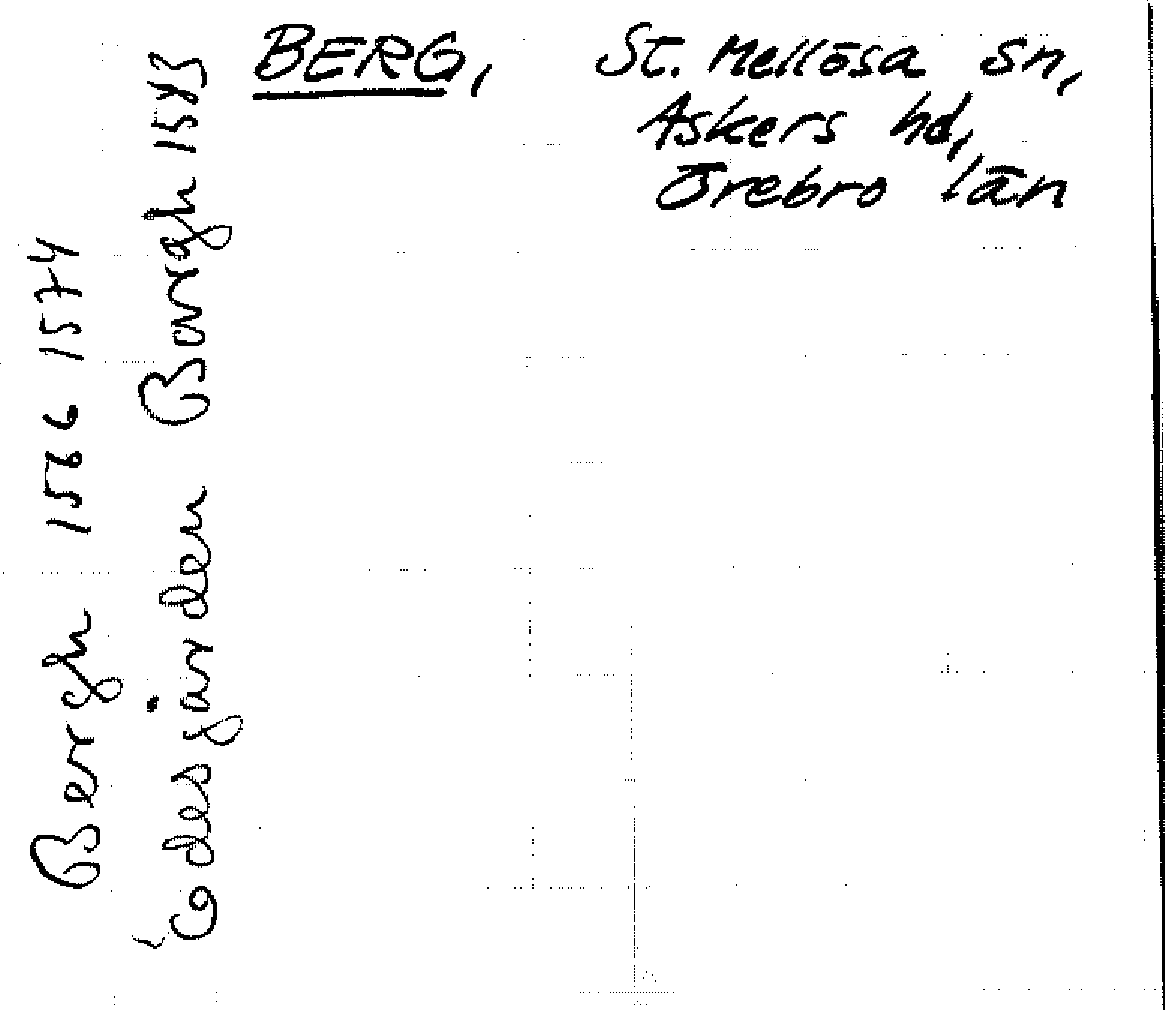 BERG, St. Mellösa sn,
Askers hd,
Örebro län
Bergh 1566 1574
Godesgården Bargh 1583